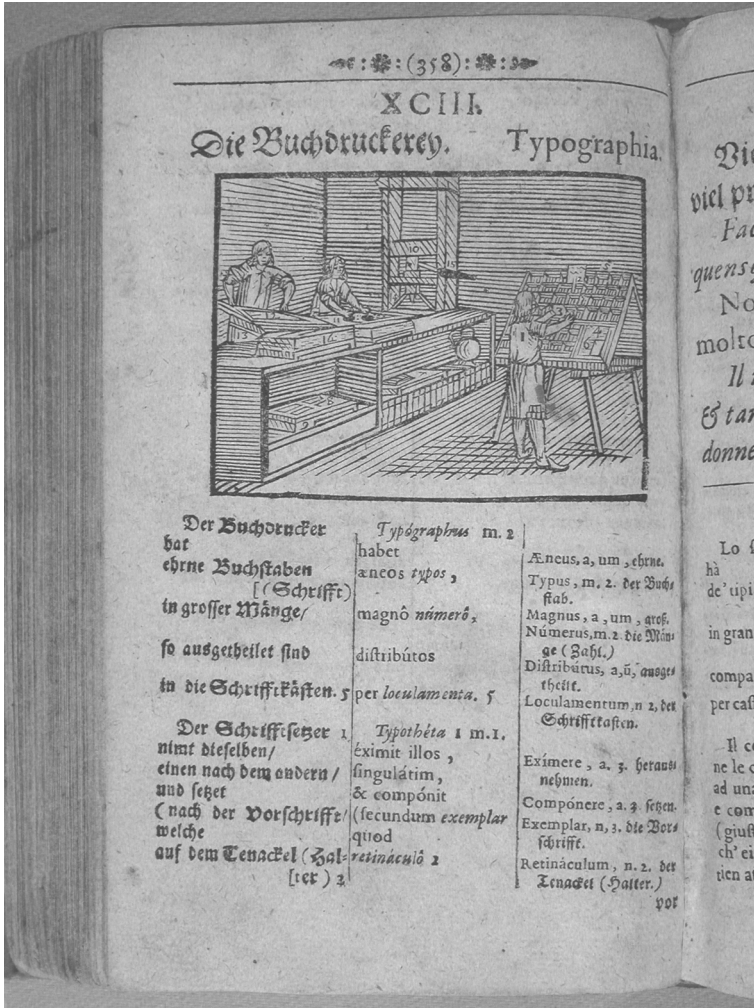 (358)
XCIII.
Die Buchdruckerey. Typographia.
Der Buchdrucker
hat
ehrne Buchstaben
[(Schrifft)
in grosser Mänge/
so ausgetheilet sind
in die Schrifftkästen. 5
Der Schrifftsetzer 1
nimt dieselben/
einen nach dem andern/
und setzet
(nach der Vorschrifft/
welche
auf dem Tenackel (Hal-
[ter) 2
Typógraphus m. 2
habet
æneos typos,
magnô númerô,
distribútos
per loculamenta. 5
Typothéta 1 m. 1.
éximit illos,
singulátim,
& compónit
(secundum exemplar
quod
retináculô 2
Æneus, a, um, ehrne.
Typus, m. 2. der Buch-
stab.
Magnus, a, um, groß.
Númerus, m. 2 die Män-
ge (Zahl.)
Distribútus, a, ũ, ausge-
theilt.
Loculamentum, n 2, der
Schrifftkasten.
Exímere, a. 3. heraus-
nehmen.
Compónere, a. 3. setzen.
Exemplar, n, 3. die Vor-
schrifft.
Retináculum, n. 2. der
Tenackel (Halter.)
vor
viel
Il
& tan
donne
Lo
hà
de' tipi
in gran
compa
per cass
Il co
ne le
ad una
e com
(giust
ch' ei
tien at